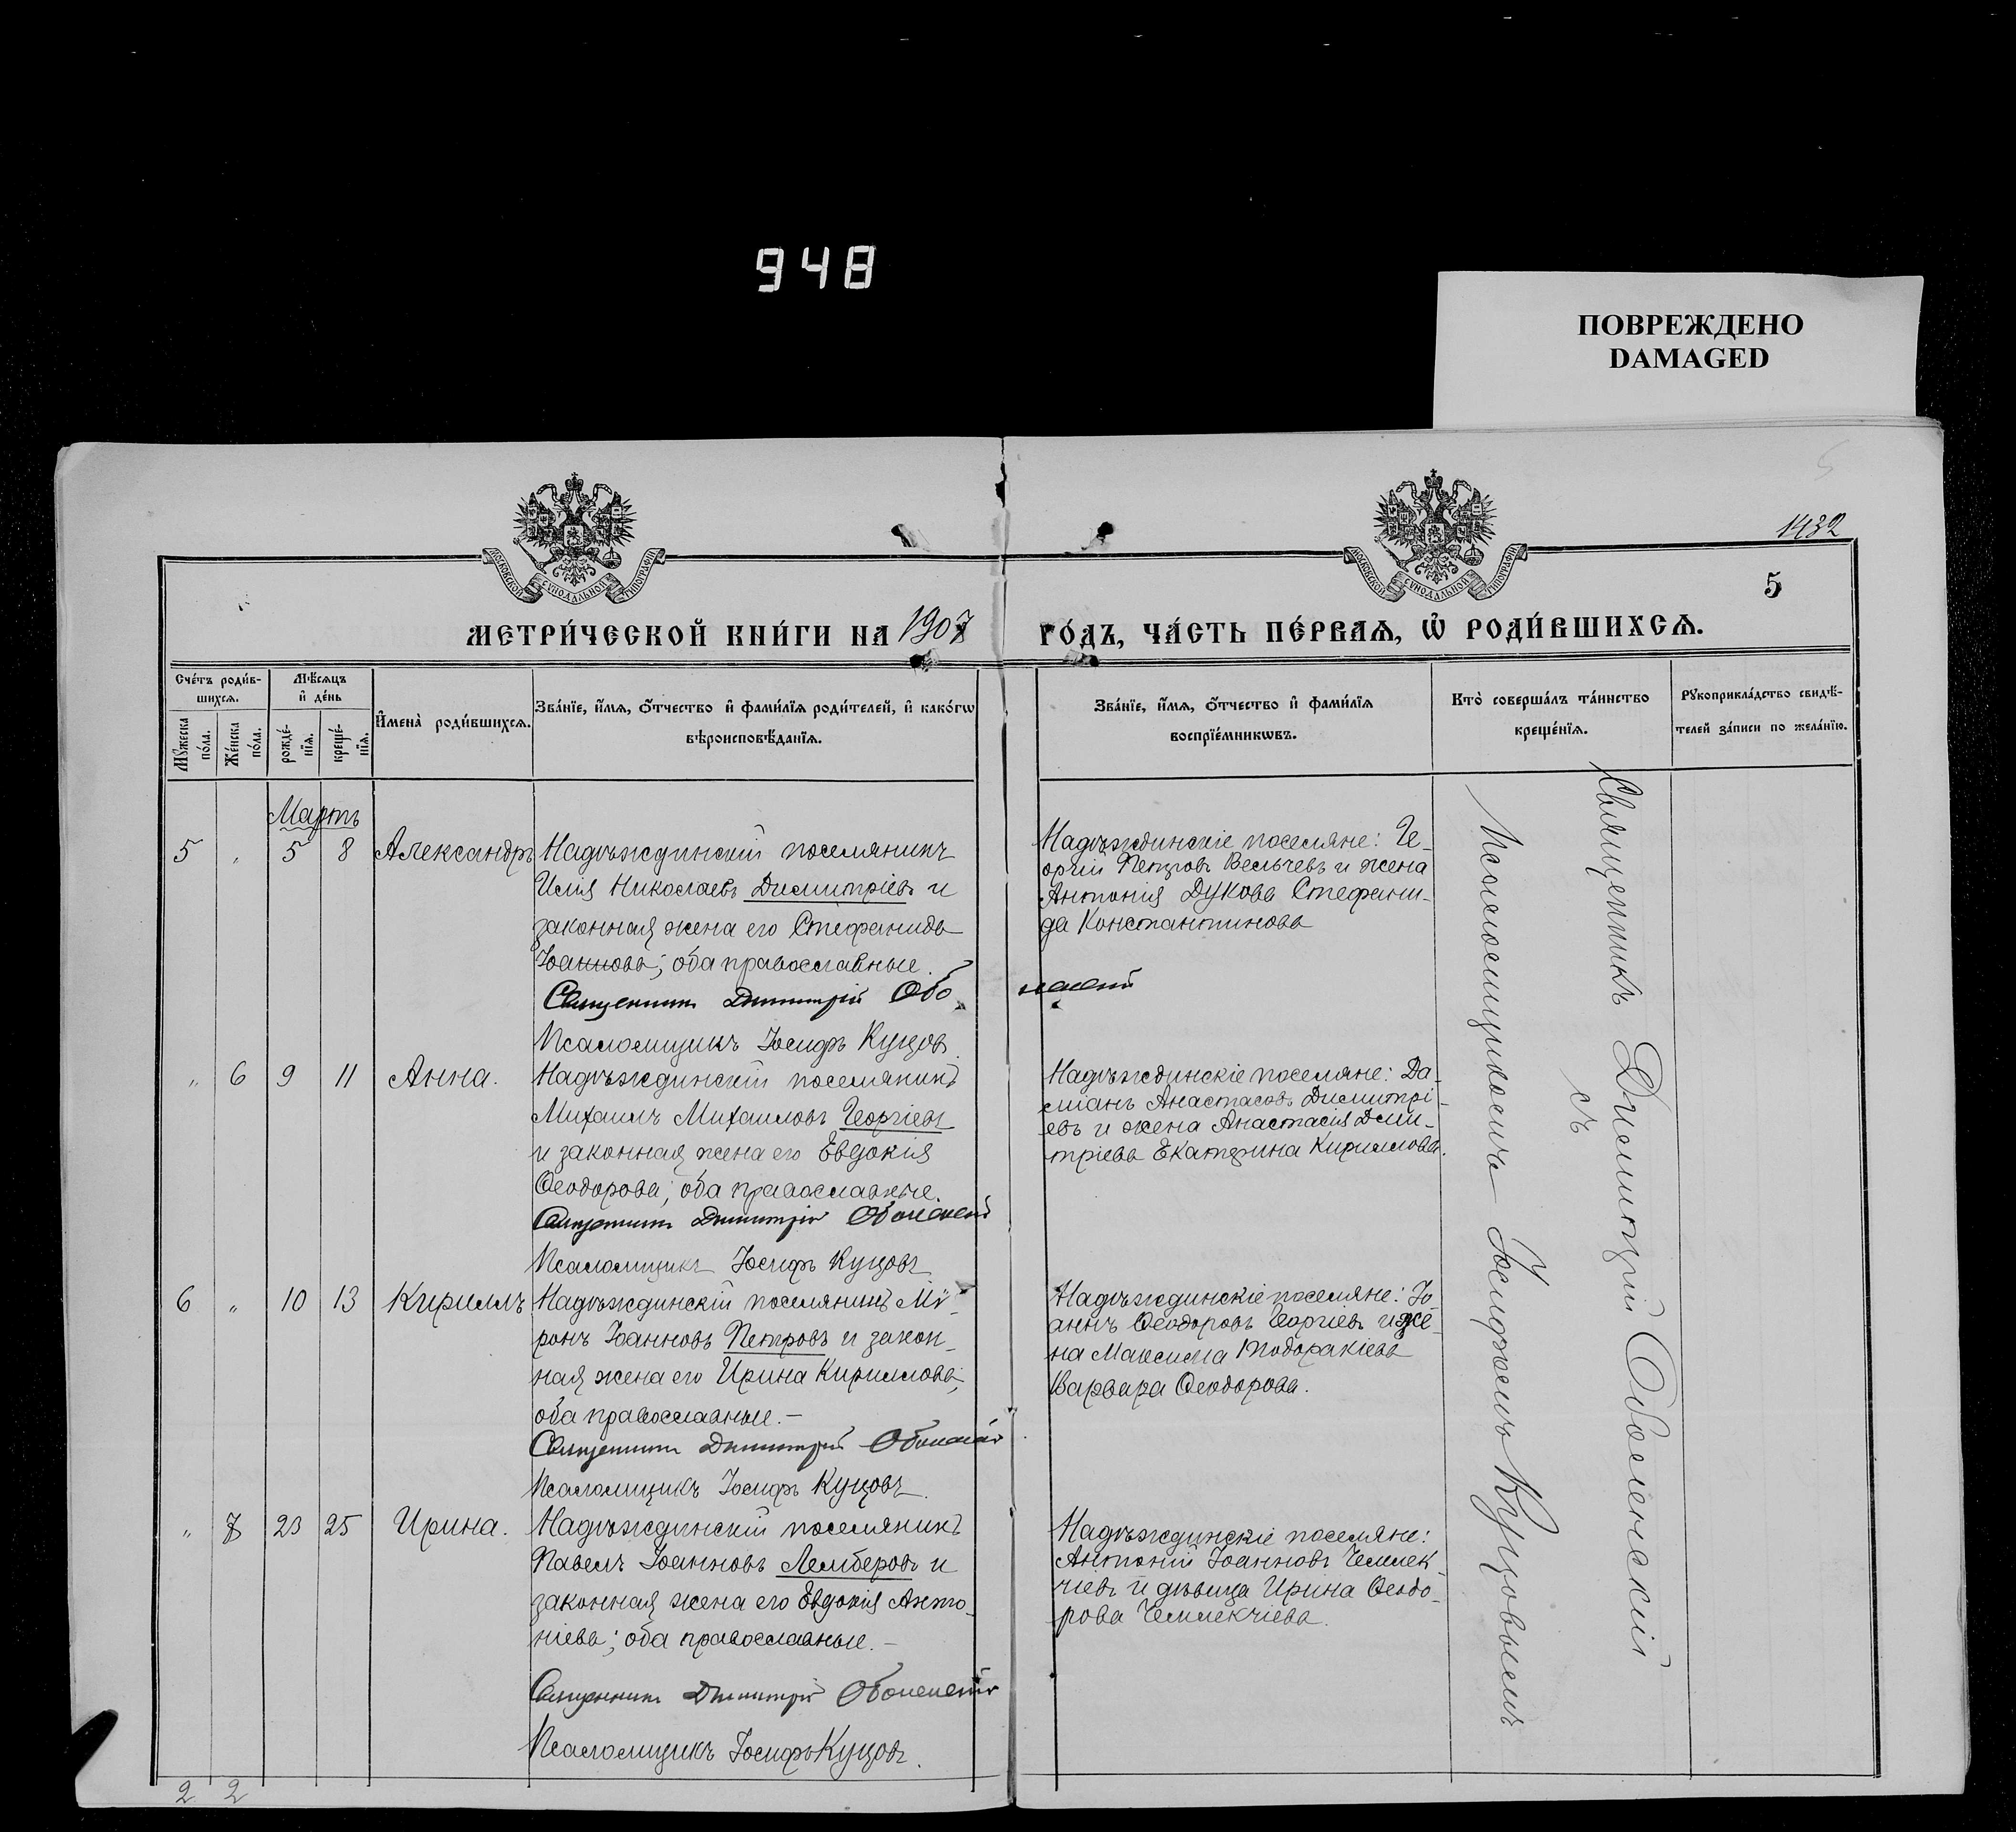 948
ПОВРЕЖДЕНО
DAMAGED
5
1432
МОСКОВСКОЙ СѴНОДАЛЬНОЙ ТИПОГРАФІИ
МОСКОВСКОЙ СѴНОДАЛЬНОЙ ТИПОГРАФІИ
5
МЕТРИ́ЧЕСКОЙ КНИ́ГИ НА 1907 ГО́ДЪ, ЧА́СТЬ ПЕ́РВАѦ, Ѽ РОДИ́ВШИХСѦ.
Сче́тъ роди́в-
шихсѧ.
Мꙋжеска по́ла.
Же́нска по́ла.
Мѣ́сѧцъ
и҆ де́нь
рожде́-
нїѧ.
креще́-
нїѧ.
И҆мена̀ роди́вшихсѧ.
Зва́нїе, и҆́мѧ, ѻ҆́тчество и҆ фами́лїѧ роди́телей, и҆ како́гѡ
вѣроисповѣ́данїѧ.
Зва́нїе, и҆́мѧ, ѻ҆́тчество и҆ фами́лїѧ
воспрїе́мникѡвъ.
Кто̀ соверша́лъ та́инство
креще́нїѧ.
Рꙋкоприкла́дство свидѣ́-
телей за́писи по жела́нїю.
Мартъ
5 " 5 8 Александръ
Надѣждинскій поселянинъ
Илія Николаевъ Димитріевъ и
законная жена его Стефанида
Іоаннова; оба православные.
Священникъ Димитрій Оболенскій
Псаломщикъ Іосифъ Куцовъ
Надѣждинскіе поселяне: Ге-
оргій Петровъ Вельчевъ и жена
Антонія Дукова Стефани-
да Константинова
" 6 9 11 Анна.
Надѣждинскій поселянинъ
Михаилъ Михаиловъ Георгіевъ
и законная жена его Евдокія
Ѳеодорова; оба православные.
Священникъ Димитрій Оболенскій
Псаломщикъ Іосифъ Куцовъ
Надѣждинскіе поселяне: Да-
міанъ Анастасовъ Димитрі-
евъ и жена Анастасія Дими-
тріева Екатерина Кириллова.
6 " 10 13 Кириллъ
Надѣждинскій поселянинъ Мѵ-
ронъ Іоанновъ Петровъ и закон-
ная жена его Ирина Кириллова;
оба православные.-
Священникъ Димитрій Оболенскій
Псаломщикъ Іосифъ Куцовъ.
Надѣждинскіе поселяне: Іо-
аннъ Ѳеодоровъ Георгіевъ и же-
на Максима Тодоракіева
Варвара Ѳеодорова.
" 7 23 25 Ирина.
Надѣждинскій поселянинъ
Павелъ Іоанновъ Лемберовъ и
законная жена его Евдокія Анто-
ніева; оба православные.-
Священникъ Димитрій Оболенскій
Псаломщикъ Іосифъ Куцовъ.
Надѣждинскіе поселяне:
Антоній Іоанновъ Чемлек-
чіевъ и дѣвица Ирина Ѳеодо-
рова Чемлекчіева.
Священникъ Димитрій Оболенскій
съ
Псаломщикомъ Іосифомъ Куцовымъ
2 2